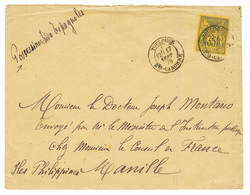 Possessions Espagnoles
TOULOUSE
Monsieur le Docteur Joseph Montano
Envoyé par Mr le Ministre de l'Instruction publique
chez Monsieur le Consul de France
Iles Philippines Manille